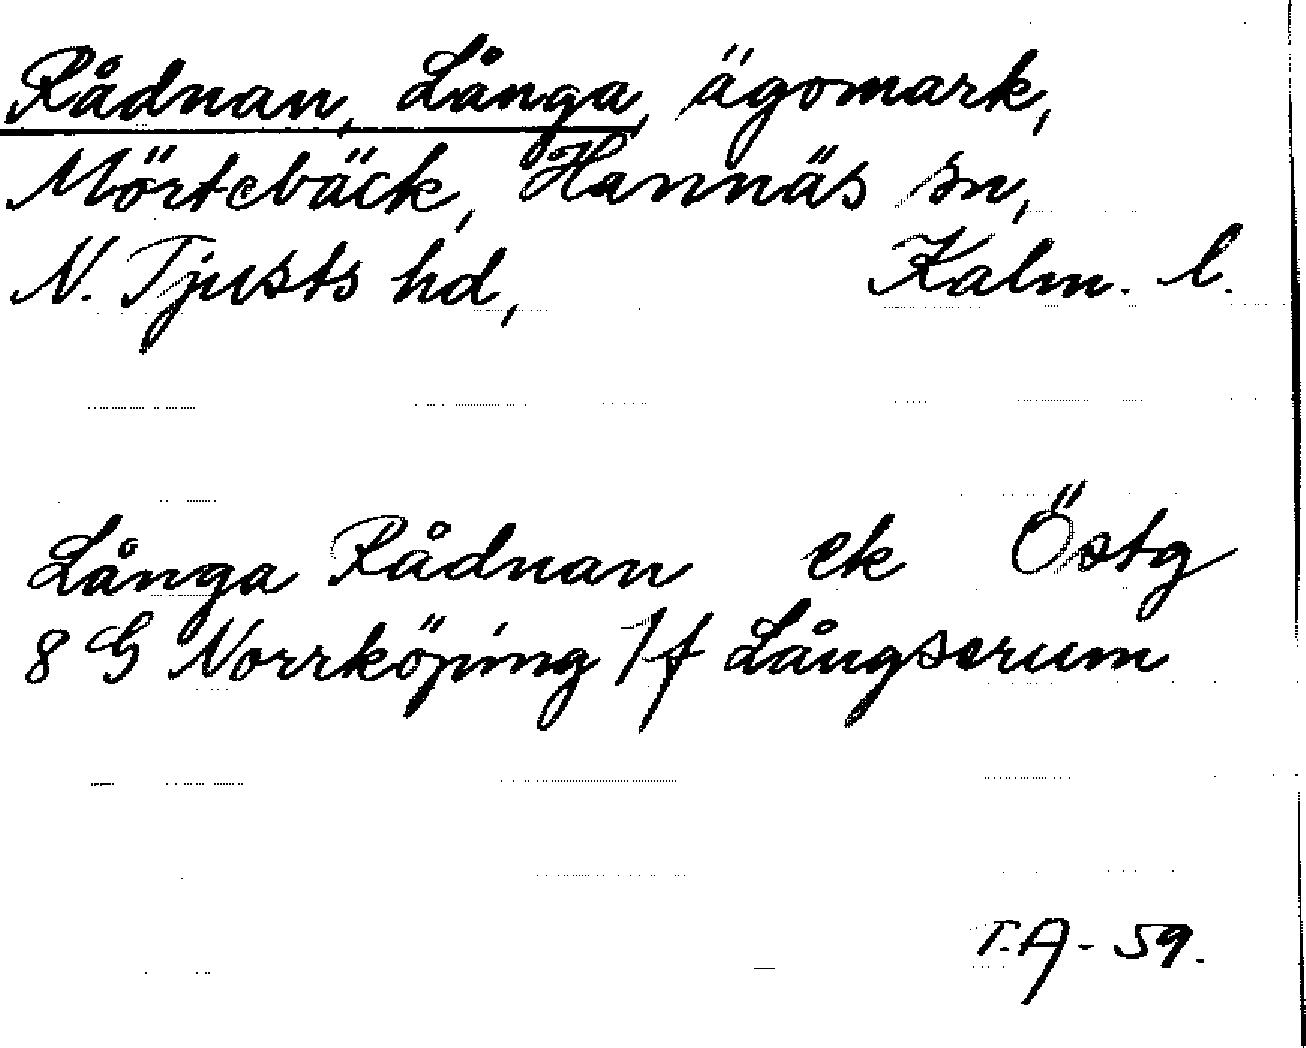 Rådnan, Långa, ägomark,
Mörtebäck, Hannäs sn,
N. Tjusts hd, Kalm. l.
Långa Rådnan ek Östg
8 G Norrköping 7f Långserum
T.A - 59.